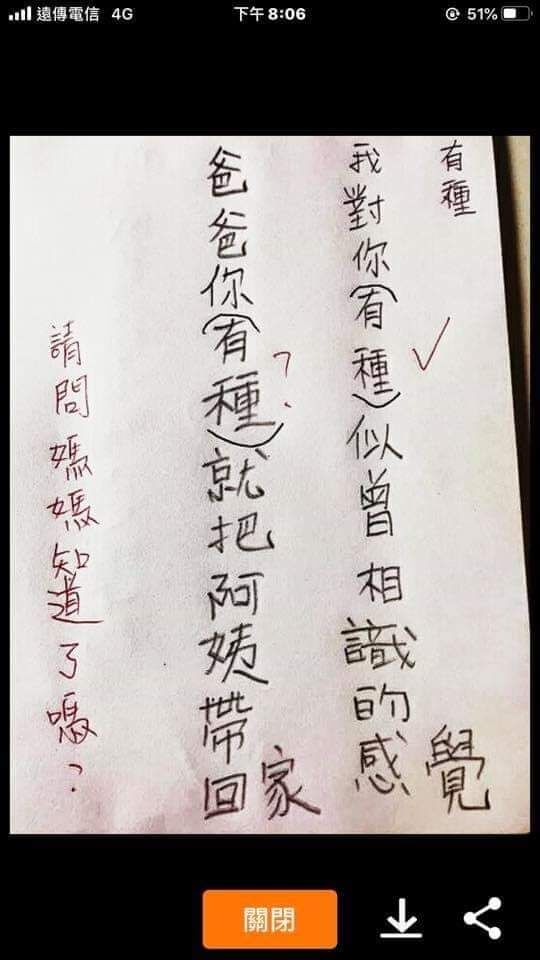 遠傳電信 4G 下午8:06 51%
有種
我對你(有種)似曾相識的感覺 ✓
爸爸你(有種)就把阿姨帶回家 ?
請問媽媽知道了嗎?
關閉